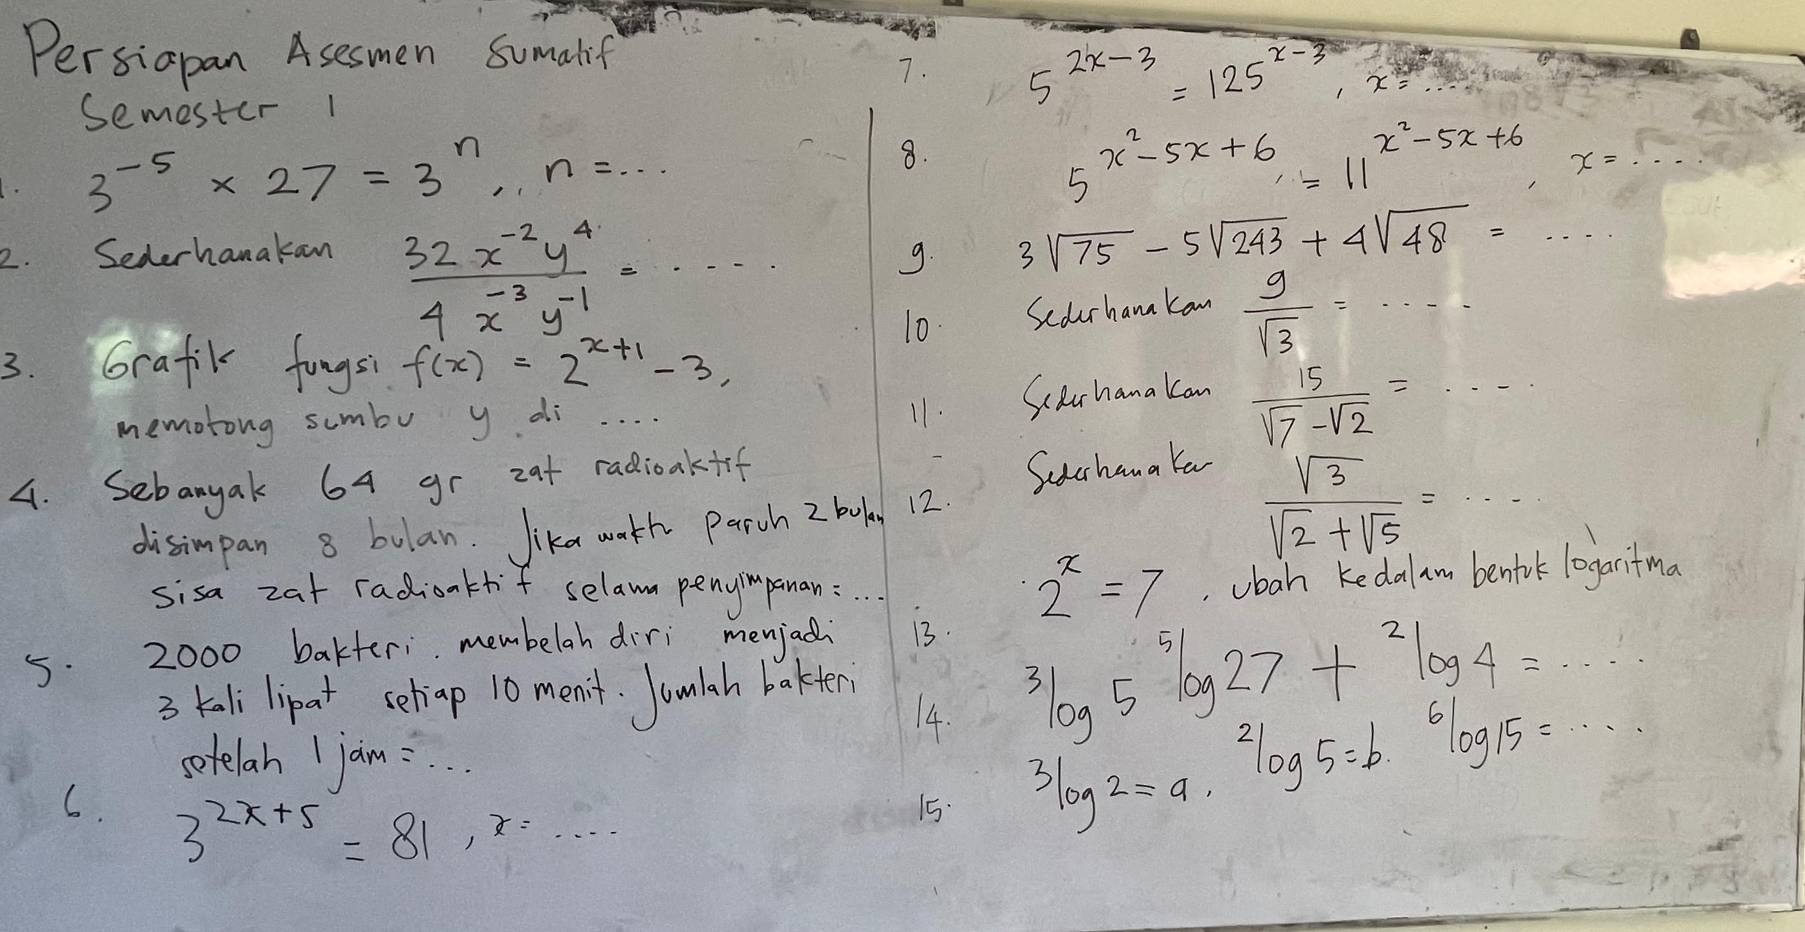 Persiapan Asesmen Sumatif
Semester 1
1. 3^{-5} × 27 = 3^n, n = ...
2. Sederhanakan \frac{32 x^{-2} y^4}{4 x^{-3} y^{-1}} = .....
3. Grafik fungsi f(x) = 2^{x+1} - 3,
memotong sumbu y di ....
4. Sebanyak 64 gr zat radioaktif
disimpan 8 bulan. Jika waktu paruh 2 bulan
sisa zat radioaktif selama penyimpanan = ...
5. 2000 bakteri membelah diri menjadi
3 kali lipat setiap 10 menit. Jumlah bakteri
setelah 1 jam = ...
6. 3^{2x+5} = 81, x = ....
7. 5^{2x-3} = 125^{x-3}, x = ....
8. 5^{x^2-5x+6} = 11^{x^2-5x+6}, x = ....
9. 3√75 - 5√243 + 4√48 = ....
10. Sederhanakan \frac{9}{√3} = ....
11. Sederhanakan \frac{15}{√7-√2} = ....
12. Sederhanakan \frac{√3}{√2+√5} = ....
13. 2^x = 7, ubah kedalam bentuk logaritma
14. ³log 5 ⁵log 27 + ²log 4 = ....
15. ³log 2 = a, ²log 5 = b. ⁶log 15 = ....